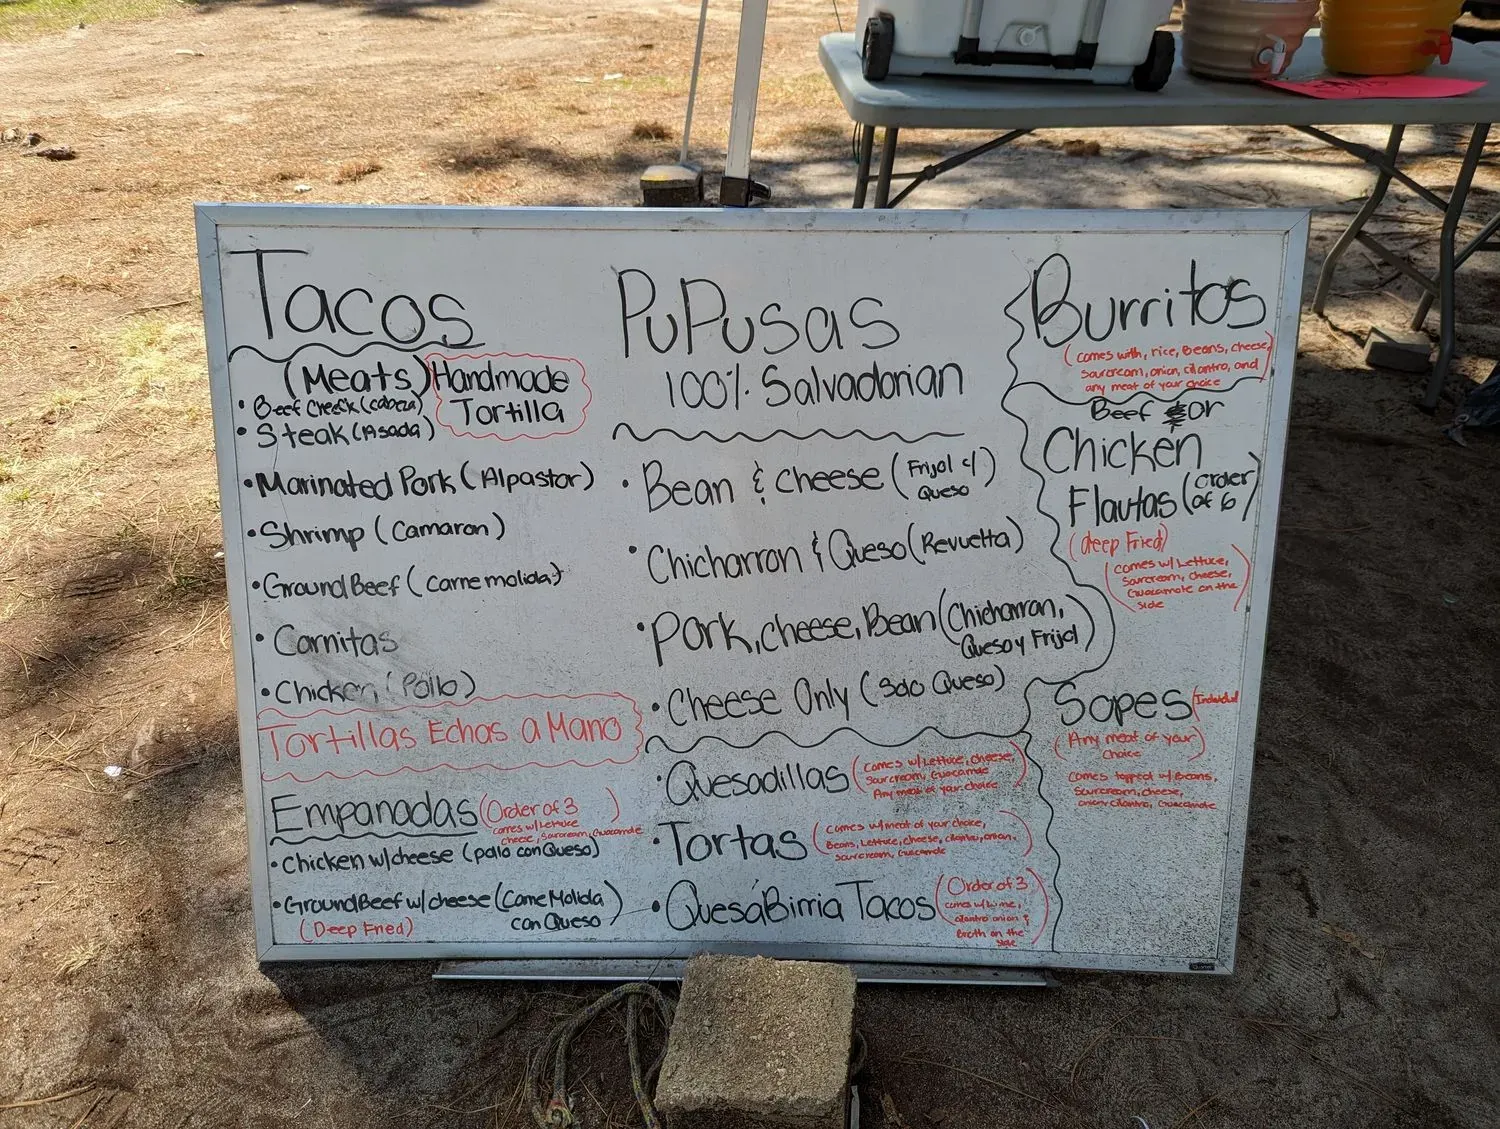 Tacos
(Meats)
Handmade
Tortilla
• Beef Cheek (cabeza)
• Steak (Asada)
• Marinated Pork (Alpastor)
• Shrimp (Camaron)
• Ground Beef (Carne molida)
• Carnitas
• Chicken (Pollo)
Tortillas Echas a Mano
Empanadas (Order of 3)
comes w/Lettuce
cheese, Sourcream, Guacamole
• Chicken w/cheese (pollo con Queso)
• Ground Beef w/cheese (Carne Molida
con Queso)
(Deep Fried)
PuPusas
100% Salvadorian
• Bean & Cheese (Frijol c/
Queso)
• Chicharron & Queso (Revuelta)
• Pork, cheese, Bean (Chicharron,
Queso y Frijol)
• Cheese Only (Solo Queso)
• Quesadillas (comes w/Lettuce, cheese,
Sourcream, Guacamole
Any meat of your choice)
• Tortas (comes w/meat of your choice,
Beans, Lettuce, cheese, cilantro, onion,
sourcream, Guacamole)
• QuesaBirria Tacos (Order of 3
comes w/Lime,
cilantro onion &
Broth on the
side)
Burritos
(comes with, rice, Beans, cheese,
sourcream, onion, cilantro, and
any meat of your choice)
Beef or
Chicken
Flautas (order
of 6)
(deep Fried)
(comes w/Lettuce,
Sourcream, cheese,
Guacamole on the
side)
Sopes Individual
(Any meat of your
choice)
comes topped w/Beans,
Sourcream, cheese,
onion, cilantro, Guacamole